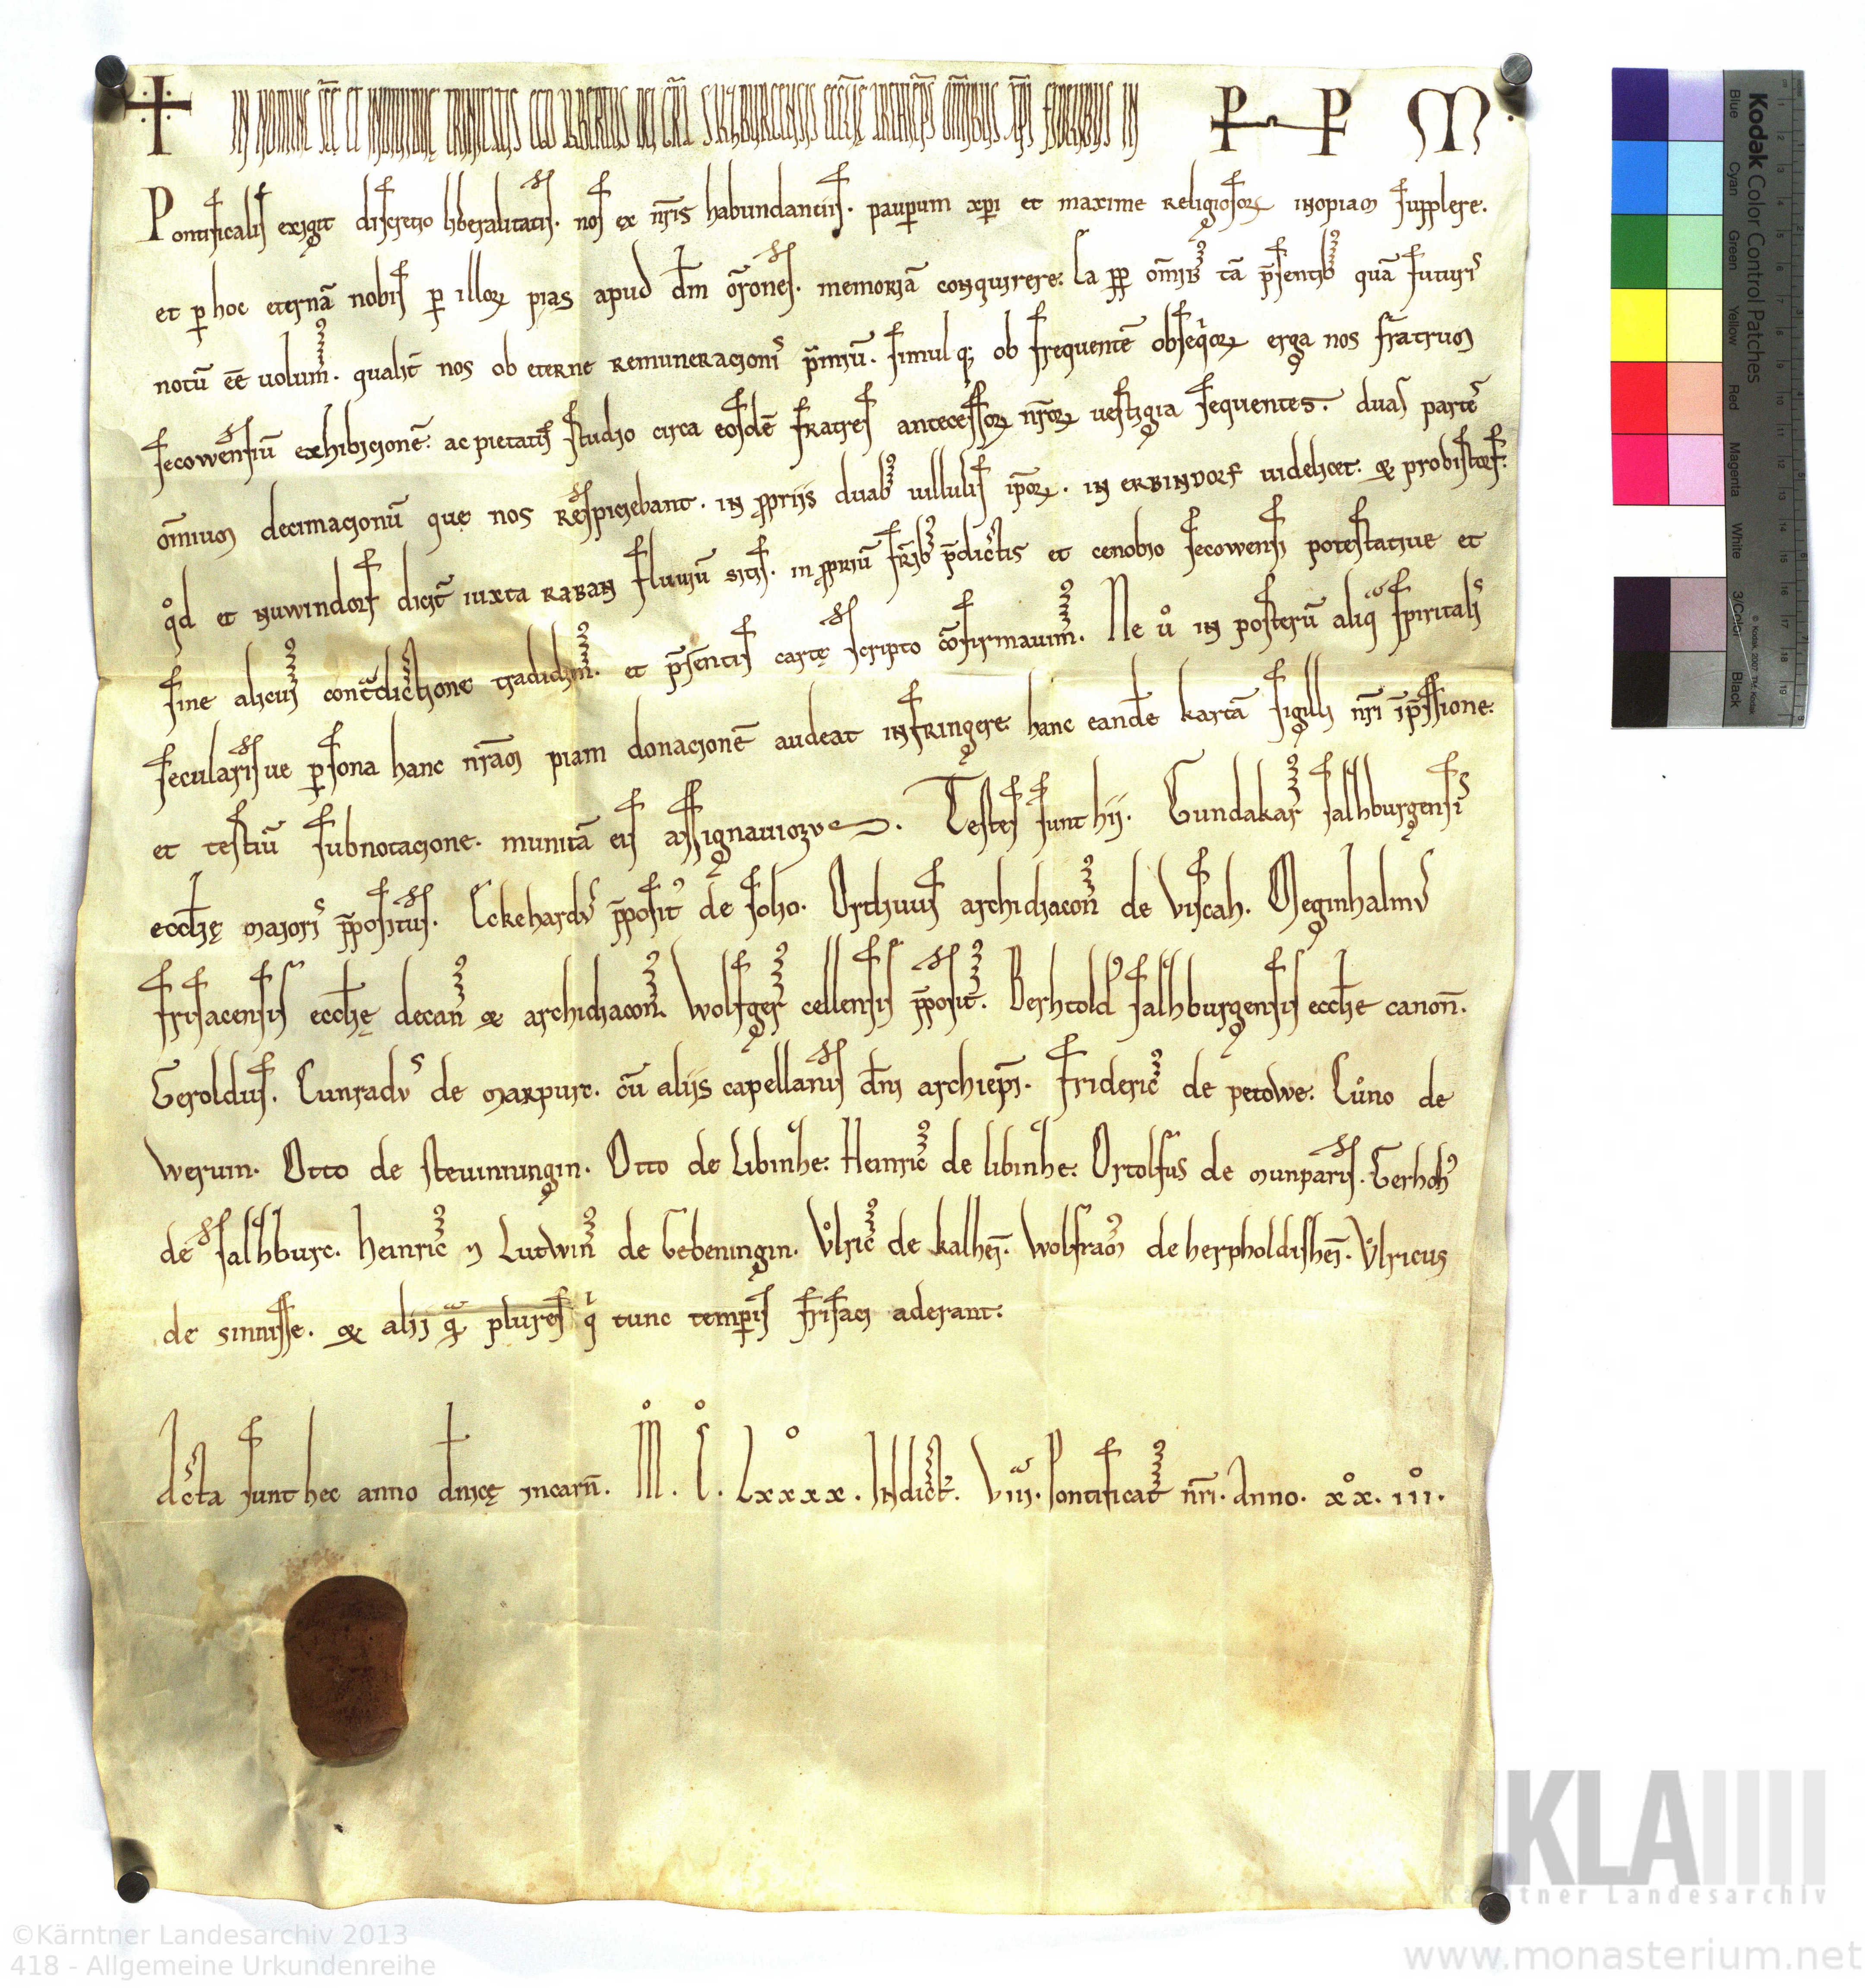 IN NOMINE SCĘ ET INDIVIDUĘ TRINITATIS EGO ALBERTUS DEI GRA SALZBURGENSIS ECCLĘ ARCHIEPS OMIBUS XPI FIDELIBUS IN P P M.
Pontificalis exigit discretio liberalitatis. nos ex nris habundanciis. paupum xpi et maxime religiosoꝝ inopiam supplere.
et p hoc eternā nobis p illoꝝ pias apud dm orones. memoriā conquirere. Ea pp omib; tā psentib; quā futuris
notū ee uolum. qualit nos ob eterne remuneracionis pmiū. simul q; ob frequentē obseqoꝝ erga nos fratrum
secowensiū exhibicionē. ac pietatis studio circa eosdē fratres antecessoꝝ nroꝝ uestigia sequentes. duas partes
omium decimacionū que nos respiciebant. in propriis duab; uillulis ipoꝝ. in erbindorf uidelicet. & probistorf.
qd et nuwindorf dicit iuxta raban fluuiū sitis. in propriū frib; pdictis et cenobio secowensi potestatiue et
sine alicuius contradictione tradidim. et psentis cartę scripto cōfirmauim. Ne ů in posterū aliqa spiritalis
secularisue psona hanc nram piam donacionē audeat infringere. hanc eandē kartā sigilli nri ipssione.
et testiū subnotacione. munitā eis assignauimus. Testes sunt hii. Gundakar salzburgensis
ecclię maioris ppositus. Eckehardus pposit de solio. Ortuuus archidiacon de Viscah. Meginhalmus
frisacensis ecclię decan & archidiacon. Wolfger cellensis pposit. Berhtold salzburgensis ecclie canon.
Geroldus. Cunradus de marpurc. cū aliis capellanis dni archiepi. Frideric de petowe. Cůno de
weruin. Otto de steuinungin. Otto de Libinze. Heinric de libinze. Ortolfus de munparis. Gerhoh
de salzburc. Heinric & Lutwin de Gebeningin. Vlric de kalhe. Wolfram de herpholdishe. Vlricus
de sinnisse. & alii qa plures qi tunc temporis frisaci aderant.
Acta sunt hec anno dnicę incarn. M. C. Lxxxx. Indict. Viii. Pontificat nri. Anno. xx. iii.
Kodak Color Control Patches
Blue Cyan Green Yellow Red Magenta White 3/Color Black
© Kodak, 2007, TM: Kodak
KLA
Kärntner Landesarchiv
©Kärntner Landesarchiv 2013
418 - Allgemeine Urkundenreihe
www.monasterium.net